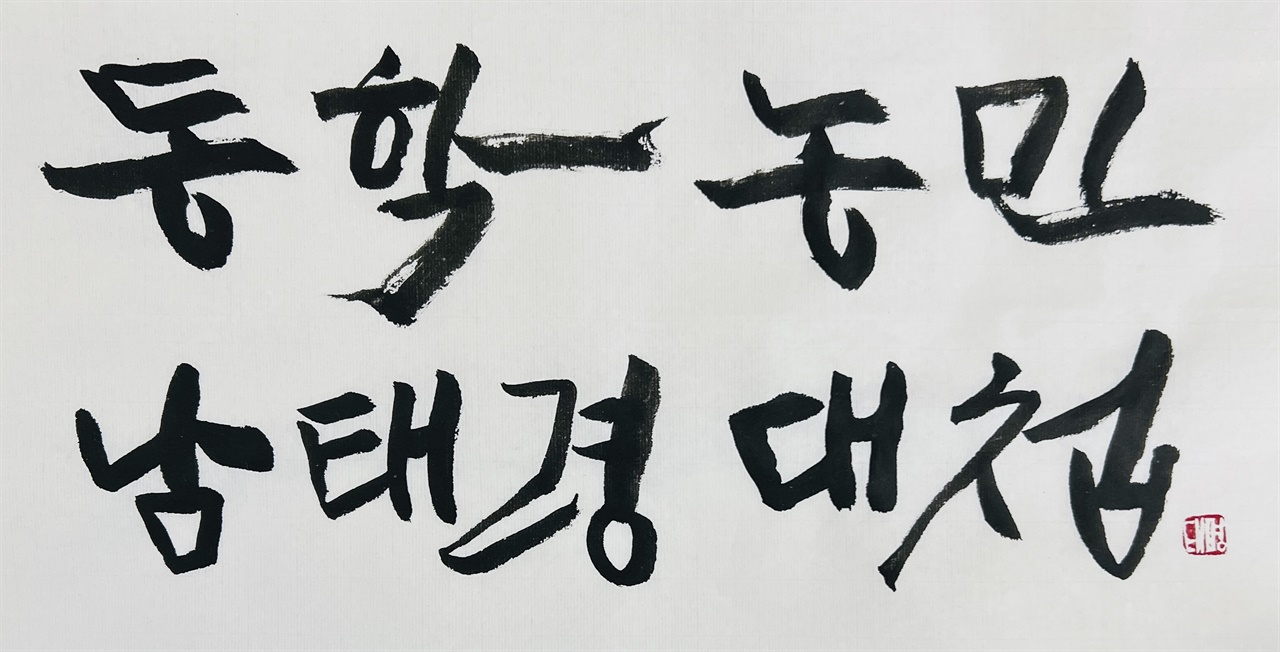 동학 농민
남태령 대첩